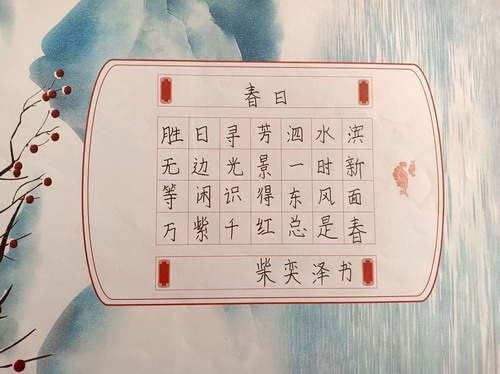 春日
胜日寻芳泗水滨
无边光景一时新
等闲识得东风面
万紫千红总是春
柴奕泽书